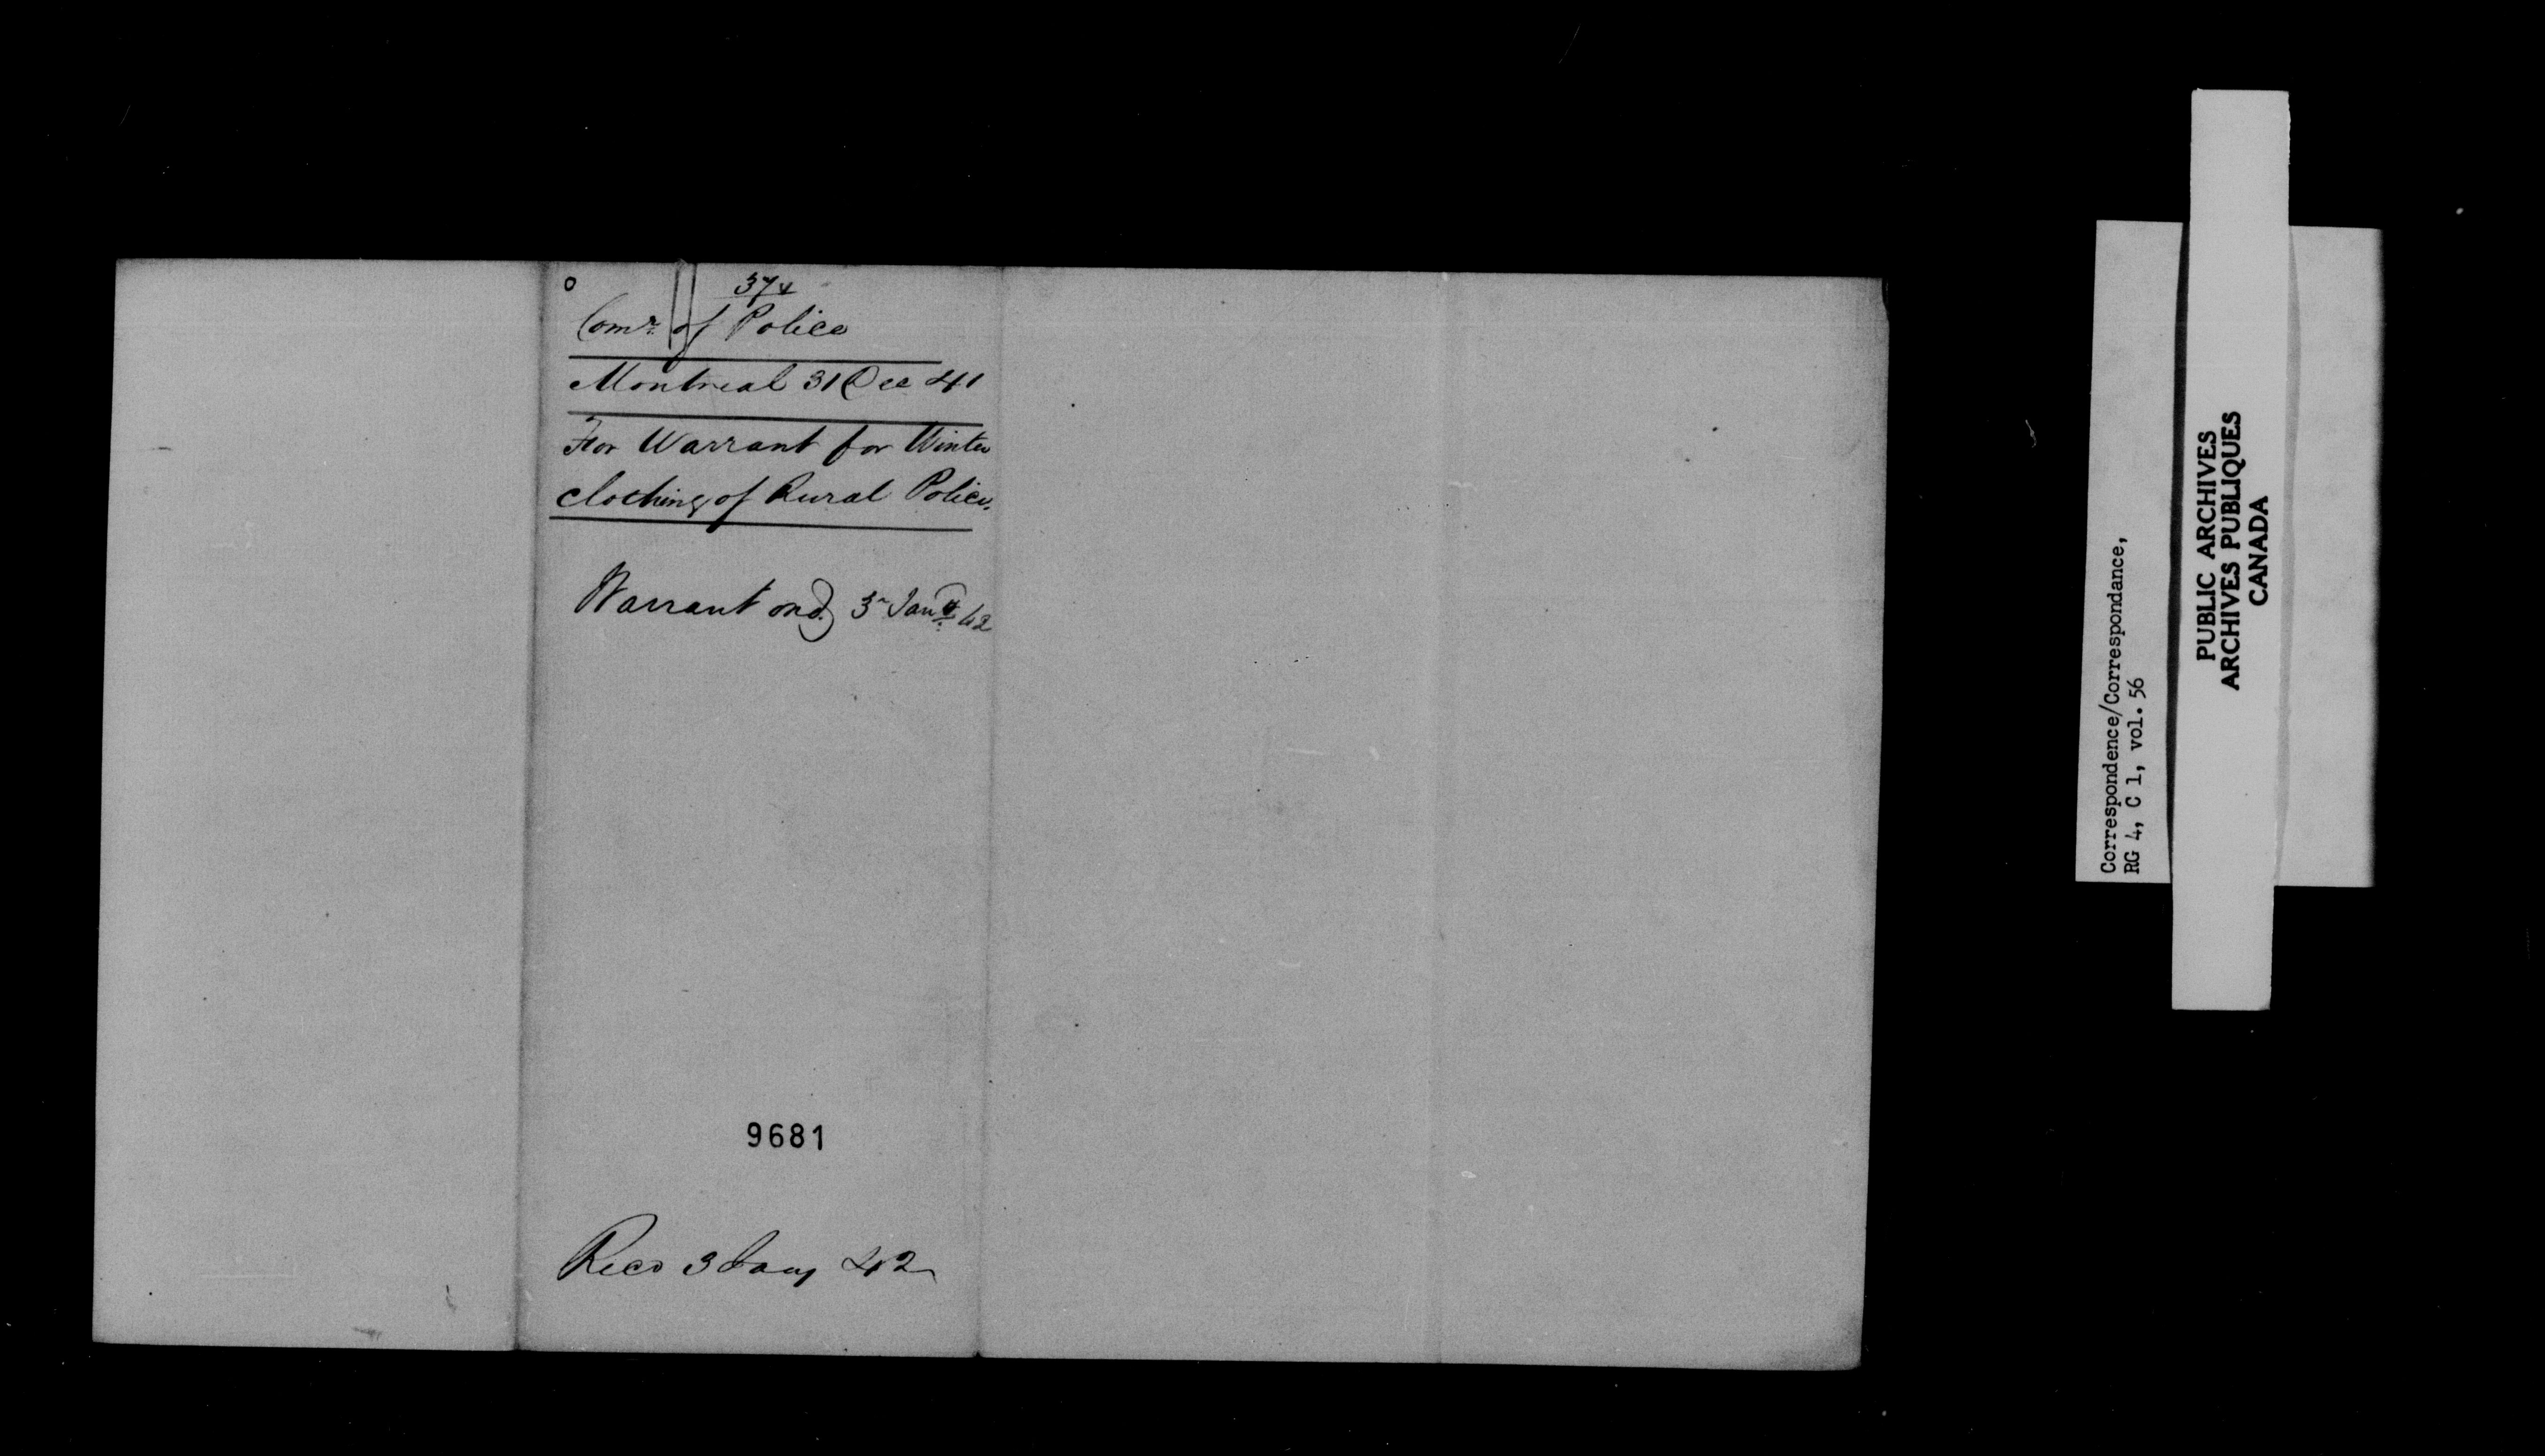 374
Comr. of Police
Montreal 31 Dec 41
For Warrant for Winter
clothing of Rural Police.
Warrant ord. 3 Jany 42
9681
Recd 3 Jany 42
Correspondence/Correspondance,
RG 4, C 1, vol. 56
PUBLIC ARCHIVES
ARCHIVES PUBLIQUES
CANADA